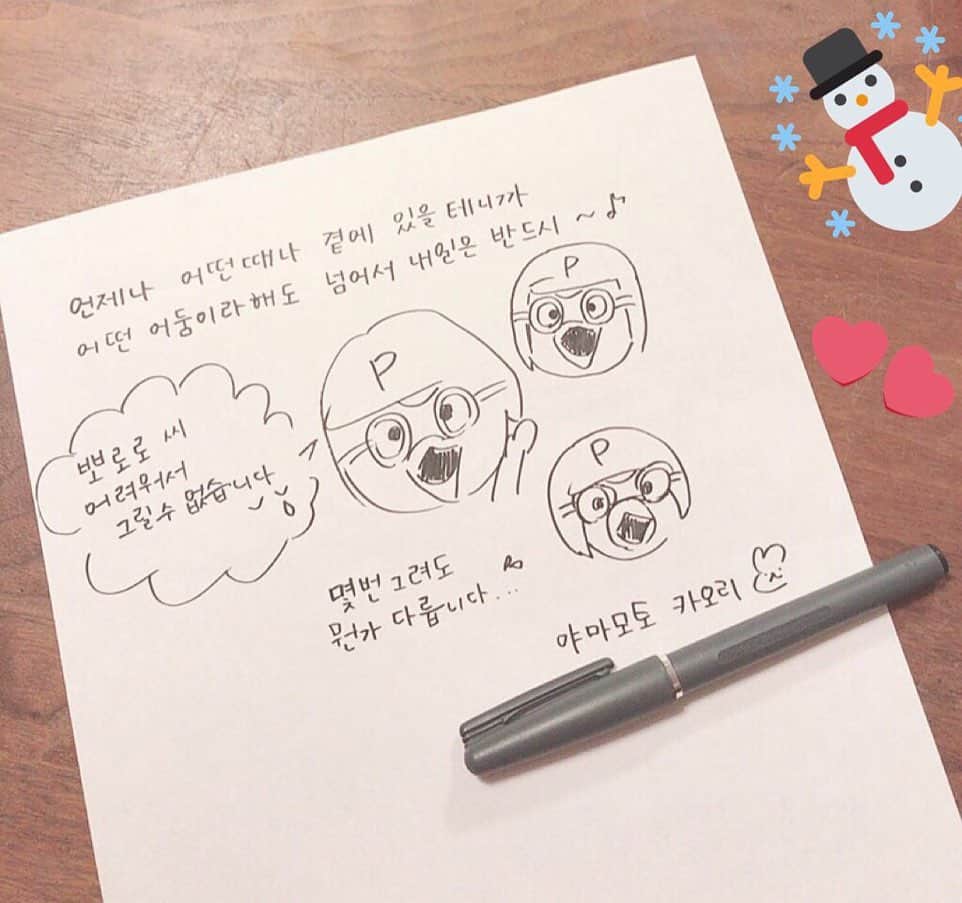 언제나 어떤때나 곁에 있을테니까
어떤 어둠이라해도 넘어서 내일은 반드시 ~♪
P
P
뽀로로 씨
어려워서
그릴수 없습니다
P
몇번그려도
뭔가 다릅니다...
야마모토 카오리